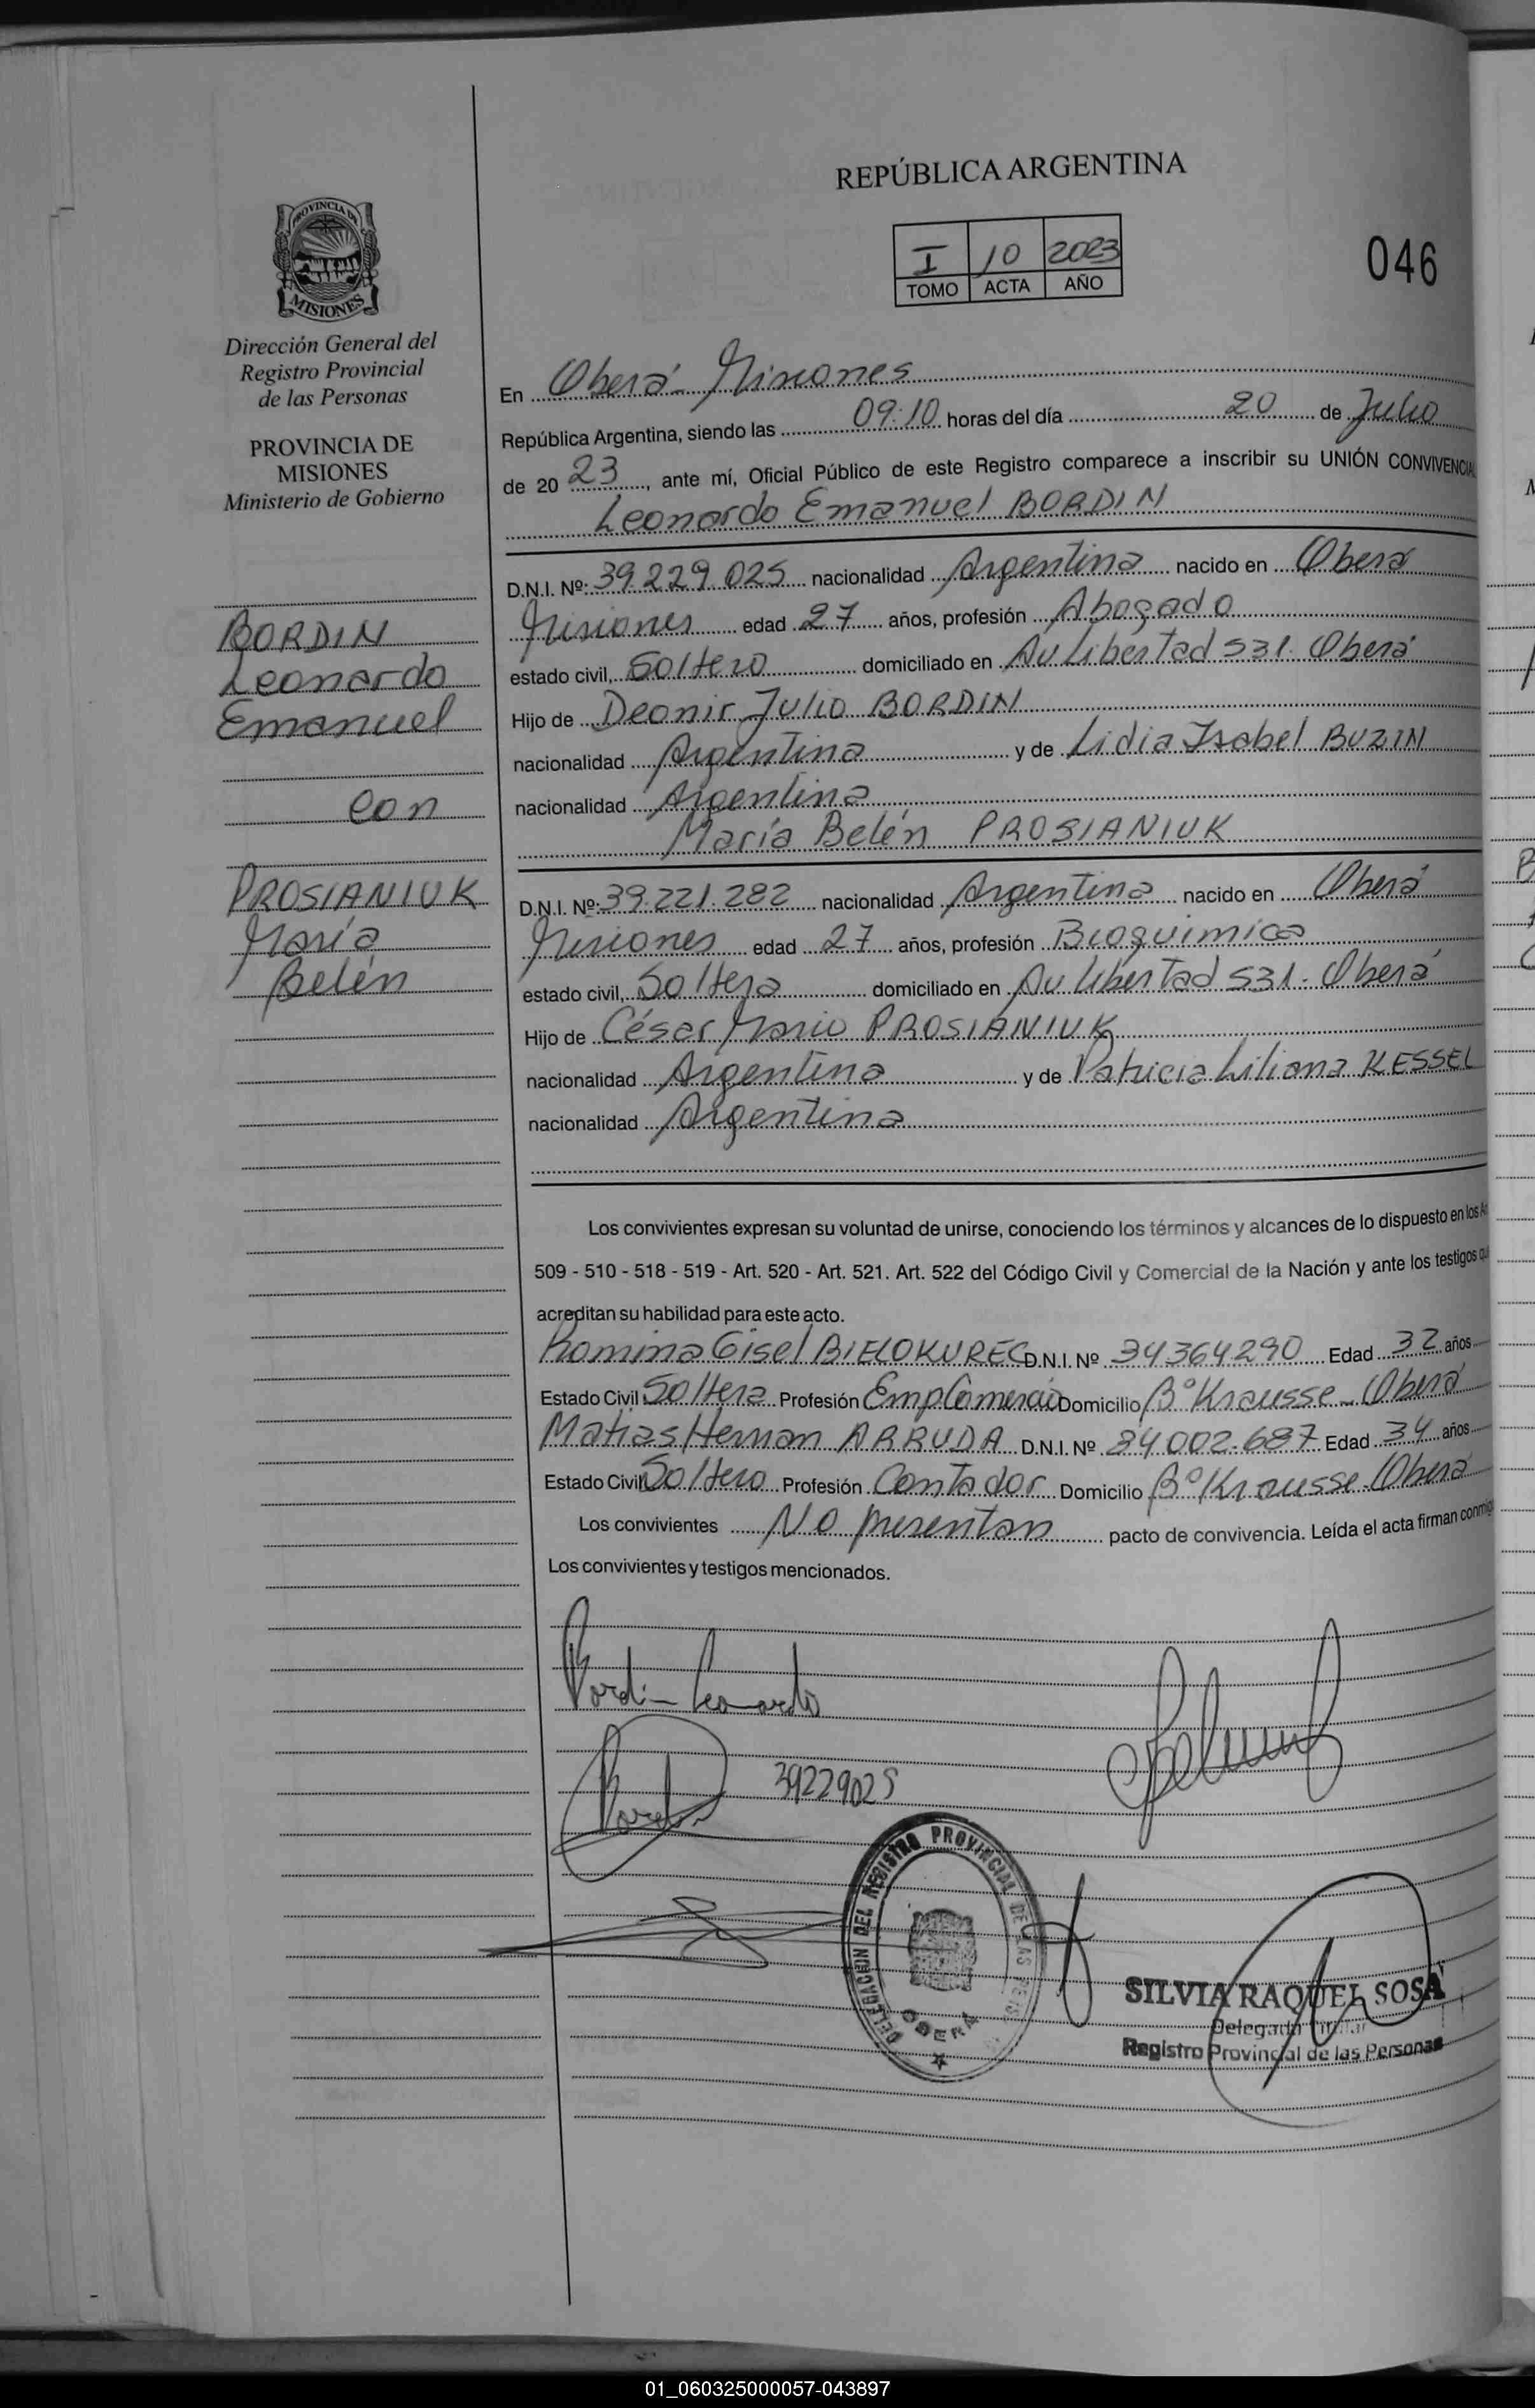 REPÚBLICA ARGENTINA
PROVINCIA DE
MISIONES
I 10 2023
TOMO ACTA AÑO
046
Dirección General del
Registro Provincial
de las Personas
PROVINCIA DE
MISIONES
Ministerio de Gobierno
BORDIN
Leonardo
Emanuel
con
PROSIANIUK
María
Belén
En Oberá - Misiones
República Argentina, siendo las 09:10 horas del día 20 de Julio
de 20 23, ante mí, Oficial Público de este Registro comparece a inscribir su UNIÓN CONVIVENCIAL
Leonardo Emanuel BORDIN
D.N.I. Nº: 39.229.025 nacionalidad Argentina nacido en Oberá
Misiones edad 27 años, profesión Abogado
estado civil, Soltero domiciliado en Av Libertad 531. Oberá
Hijo de Deonir Julio BORDIN
nacionalidad Argentina y de Lidia Isabel BUZIN
nacionalidad Argentina
María Belén PROSIANIUK
D.N.I. Nº: 39.221.282 nacionalidad Argentina nacido en Oberá
Misiones edad 27 años, profesión Bioquímica
estado civil, Soltera domiciliado en Av Libertad 531. Oberá
Hijo de César Mario PROSIANIUK
nacionalidad Argentina y de Patricia Liliana KESSEL
nacionalidad Argentina
Los convivientes expresan su voluntad de unirse, conociendo los términos y alcances de lo dispuesto en los
509 - 510 - 518 - 519 - Art. 520 - Art. 521. Art. 522 del Código Civil y Comercial de la Nación y ante los testigos
acreditan su habilidad para este acto.
Romina Gisel BIELOKUREC D.N.I. Nº 34364290 Edad 32 años
Estado Civil Soltera Profesión Emp Comercio Domicilio Bº Krausse - Oberá
Matias Hernan ARRUDA D.N.I. Nº 34.002.687 Edad 34 años
Estado Civil Soltero Profesión Contador Domicilio Bº Krausse. Oberá
Los convivientes No presentan pacto de convivencia. Leída el acta firman
Los convivientes y testigos mencionados.
Bordin Leonardo
39229025
DELEGACION DEL REGISTRO PROVINCIAL DE LAS
OBERA
SILVIA RAQUEL SOSA
Delegada
Registro Provincial de las Personas
01_060325000057-043897